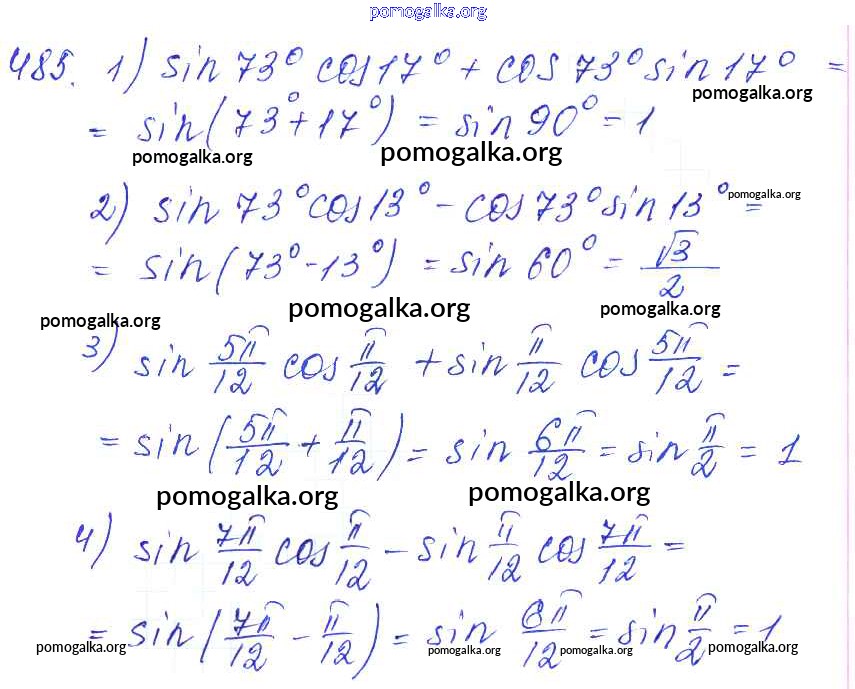 pomogalka.org
485. 1) sin 73° cos 17° + cos 73° sin 17° =
pomogalka.org
= sin(73° + 17°) = sin 90° = 1
pomogalka.org pomogalka.org
2) sin 73° cos 13° - cos 73° sin 13° =
pomogalka.org
= sin(73° - 13°) = sin 60° = √3/2
pomogalka.org pomogalka.org pomogalka.org
3) sin 5π/12 cos π/12 + sin π/12 cos 5π/12 =
= sin(5π/12 + π/12) = sin 6π/12 = sin π/2 = 1
pomogalka.org pomogalka.org
4) sin 7π/12 cos π/12 - sin π/12 cos 7π/12 =
= sin(7π/12 - π/12) = sin 6π/12 = sin π/2 = 1
pomogalka.org pomogalka.org pomogalka.org pomogalka.org